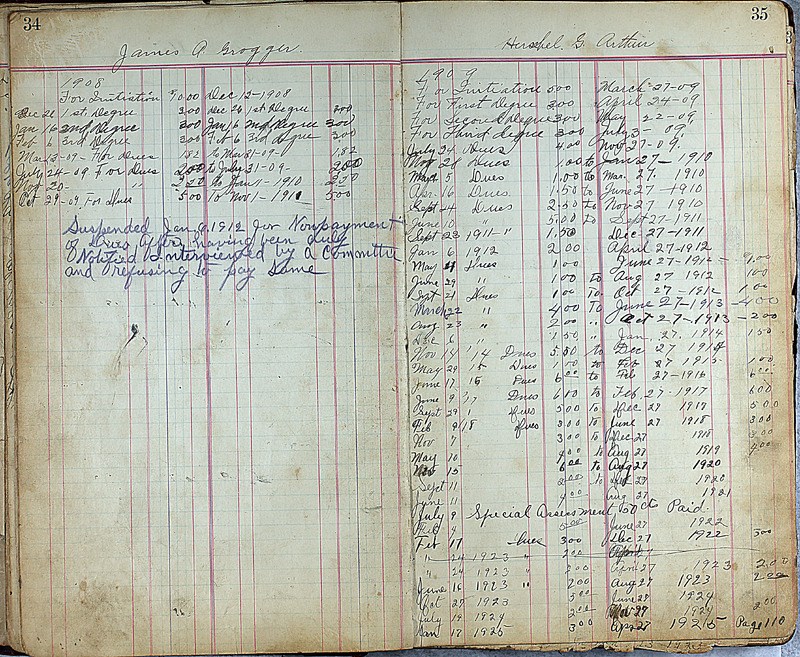 34
James A. Grogger.
1908
For Initiation 5000 Dec 12-1908
Dec 26 1st Degree 300 Dec 26 1st Degree 300
Jan 16 2nd Degree 300 Jan 16 2nd Degree 300
Feb 6 3rd Degree 300 Feb 6 3rd Degree 300
Mar 13-09-For Dues 182 to Mar 31-09- 182
July 24-09 For Dues 200 to July 31-09- 200
Nov-20- " to Jan 1-1910
Oct 29-09. For Dues 500 To Nov 1-1911 500
Suspended Jan 9 1912 for Nonpayment
of Dues after having been duly
Notified & interviewed by a Committee
and refusing to pay same
35
Herschel. G. Arthur
1909
For Initiation 500 March-27-09
For First Degree 300 April 24-09
For Second Degree 300 May 22-09
For Third degree 300 July 3-09.
July 24 Dues 400 Nov-27-09.
Nov 21 Dues 100 to Jan 27-1910
Mar 5 Dues 100 to Mar. 27. 1910
Apr-16 Dues 1.50 to June 27-1910
Sept 24 Dues 250 to Nov 27 1910
June 10 " 500 to Sept 27-1911
Sept 23 1911-" 1.50 Dec-27-1911
Jan 6 1912 200 April 27-1912
May 4 Dues 100 June 27-1912- 100
June 29 " 100 to Aug 27 1912 100
Sept 21 Dues 100 To Oct 27-1912 100
March 22 " 400 To June 27-1913-400
Aug 23 " 200 " Oct 27-1913-200
Dec 6 " 150 " Jan. 27. 1914 150
Nov 14 '14 Dues 550 to Dec 27 1914
May 29 15 Dues 100 to Feb 27 1915 100
June 17 16 Dues 600 to Feb 27-1916 600
June 9 '17 Dues 600 to Feb. 27-1917 600
Sept 29 Dues 500 To Dec 27 1917 500
Feb 9 '18 Dues 300 to June 27 1918 300
Nov 7 300 to Dec 27 1918 300
May 10 400 to Aug 27 1919 400
Nov 15 600 to Aug 27 1920
Sept 11 200 to Dec 27 1920
June 11 400 Aug 27 1921
July 9 Special Assessment 50 cts Paid.
Feb 4 500 June 27 1922
Feb 17 Dues 300 Dec 27 1922 300
" 24 1923 " 200 April
" 24 1923 " 200 Apr 27 1923 200
June 16 1923 " 200 Aug 27 1923 200
Oct 27 1923 500 June 27 1924
July 19 1924 200 Nov 27 1924 200
Jan 17 1925 300 Apr 27 1925 Page 110